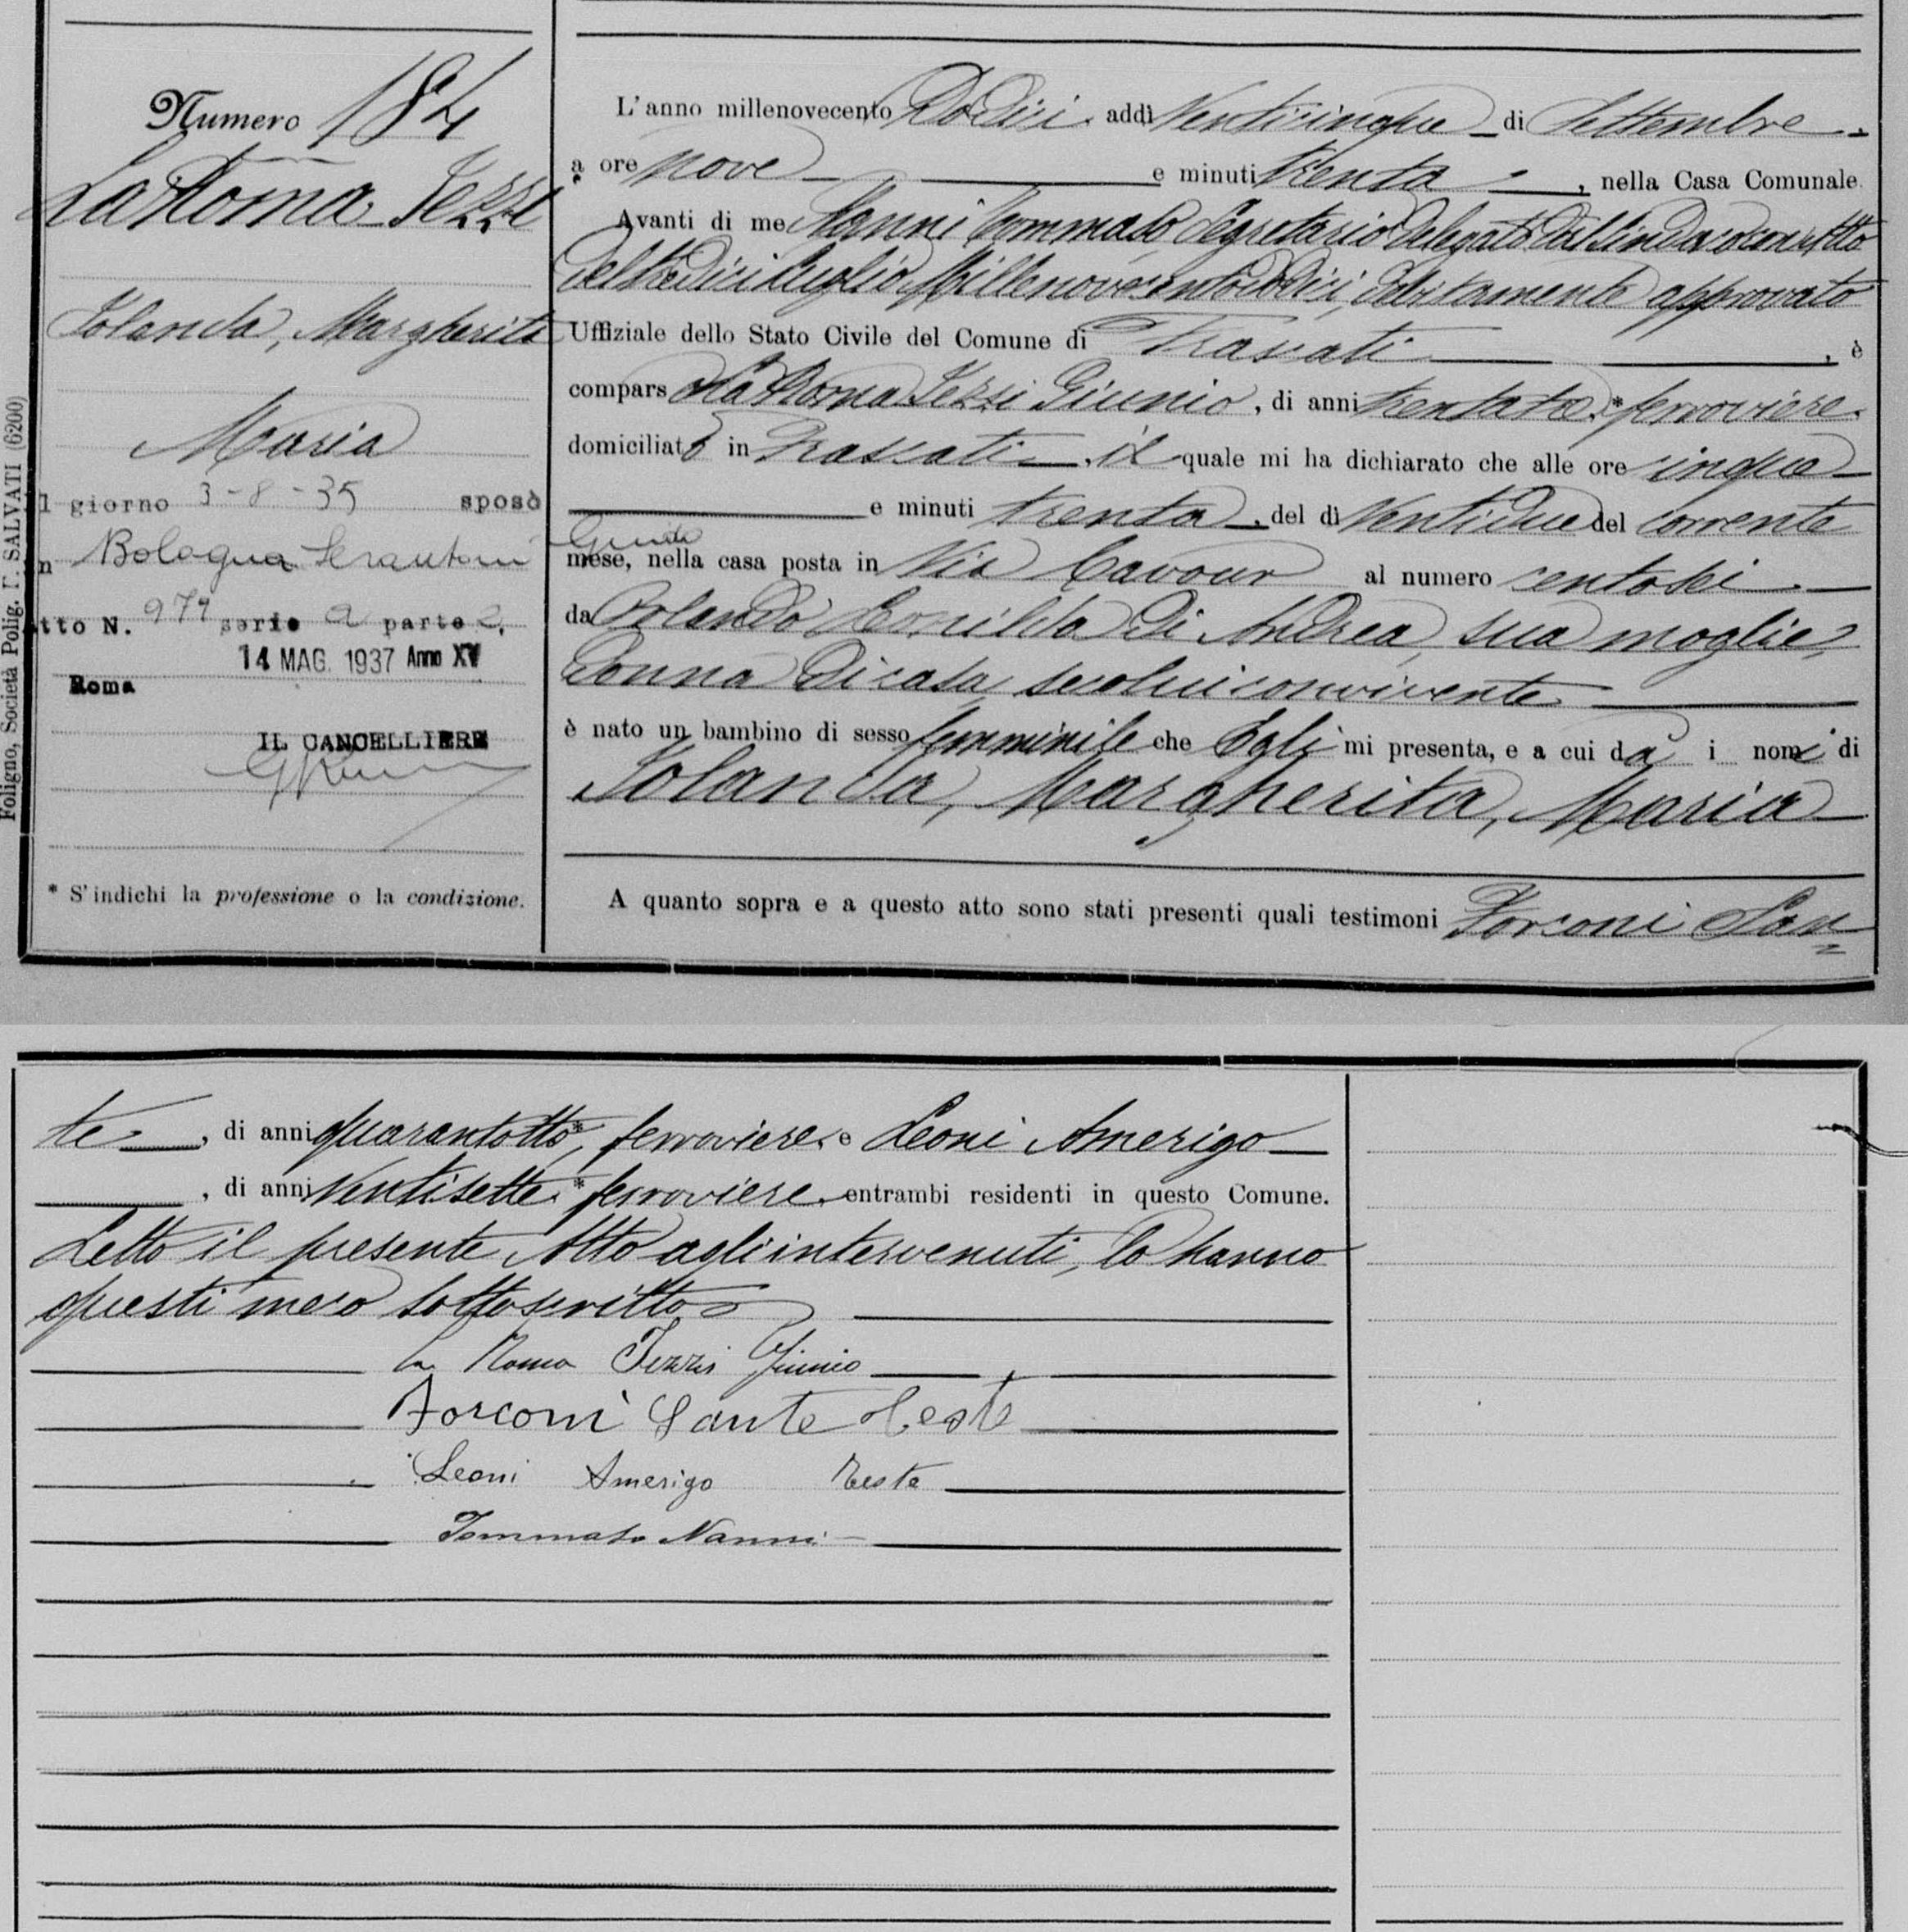 Numero 184
La Roma Iezzi
Iolanda, Margherita
Maria
l giorno 3-8-35 sposò
n Bologna Serantoni
Guido
tto N. 979 serie a parte 2,
14 MAG. 1937 Anno XV
Roma
IL CANCELLIERE
* S'indichi la professione o la condizione.
Foligno, Società Polig. F. SALVATI (6200)
L'anno millenovecento Dodici addì Venticinque di Settembre
a ore nove e minuti trenta, nella Casa Comunale.
Avanti di me Nanni Tommaso, Segretario Delegato dal Sindaco con atto
del tredici Luglio Millenovecentododici, debitamente approvato
Uffiziale dello Stato Civile del Comune di Frascati, è
comparso La Roma Iezzi Giunio, di anni trentatre * ferroviere
domiciliato in Frascati, il quale mi ha dichiarato che alle ore cinque
e minuti trenta, del dì Ventidue del corrente
mese, nella casa posta in Via Cavour al numero centosei
da Orlando Leonilda di Andrea, sua moglie,
donna di casa, secolui convivente
è nato un bambino di sesso femminile che Egli mi presenta, e a cui dà i nomi di
Iolanda, Margherita, Maria
A quanto sopra e a questo atto sono stati presenti quali testimoni Forconi San=
te, di anni quarantotto *, ferroviere e Leoni Amerigo
, di anni Ventisette * ferroviere entrambi residenti in questo Comune.
Letto il presente Atto agli intervenuti, lo hanno
questi meco sottoscritto
La Roma Iezzi Giunio
Forconi Sante Teste
Leoni Amerigo Teste
Tommaso Nanni